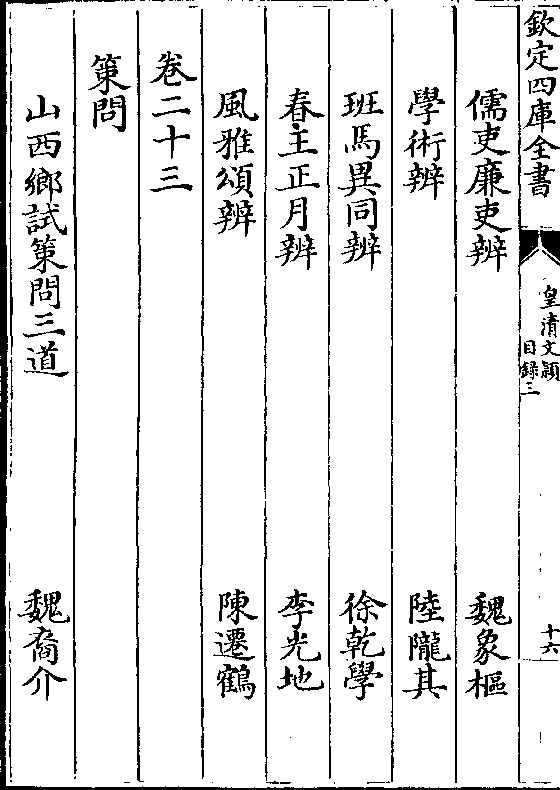 欽定四庫全書
皇清文穎
目録三
十六
儒吏廉吏辨 魏象樞
學術辨 陸隴其
班馬異同辨 徐乾學
春王正月辨 李光地
風雅頌辨 陳遷鶴
卷二十三
策問
山西鄉試策問三道 魏裔介